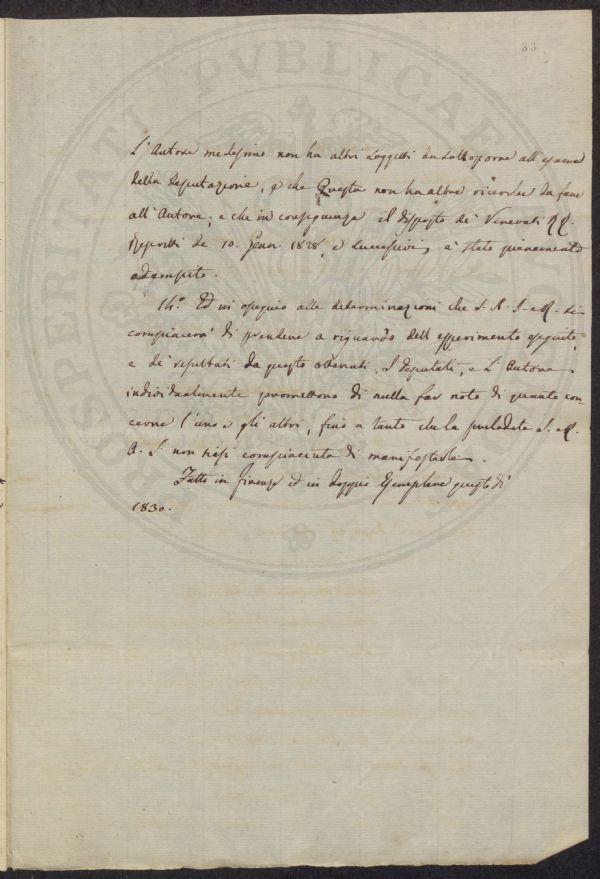 83
L'Autore medesimo non ha altri oggetti da sottoporre all'esame
della Deputazione, e che Questa non ha altre ricerche da fare
all'Autore; e che in conseguenza il disposto de' Venerati RR.
Rescritti de 10. Genn. 1828, e successivi, è stato pienamente
adempito.
14.° Ed in ossequio alle determinazioni che S. A. I. e R. si
compiacerà di prendere a riguardo dell'esperimento eseguito
e de' resultati da questo ottenuti. I Deputati, e L'Autore
individualmente promettono di nulla far noto di quanto con-
cerne l'uno e gli altri, fino a tanto che la prelodata I. e R.
A. S. non siasi compiaciuta di manifestarle.
Fatto in Firenze ed in doppio Esemplare questo dì
1830.
PROSPERITATI PVBLICAE